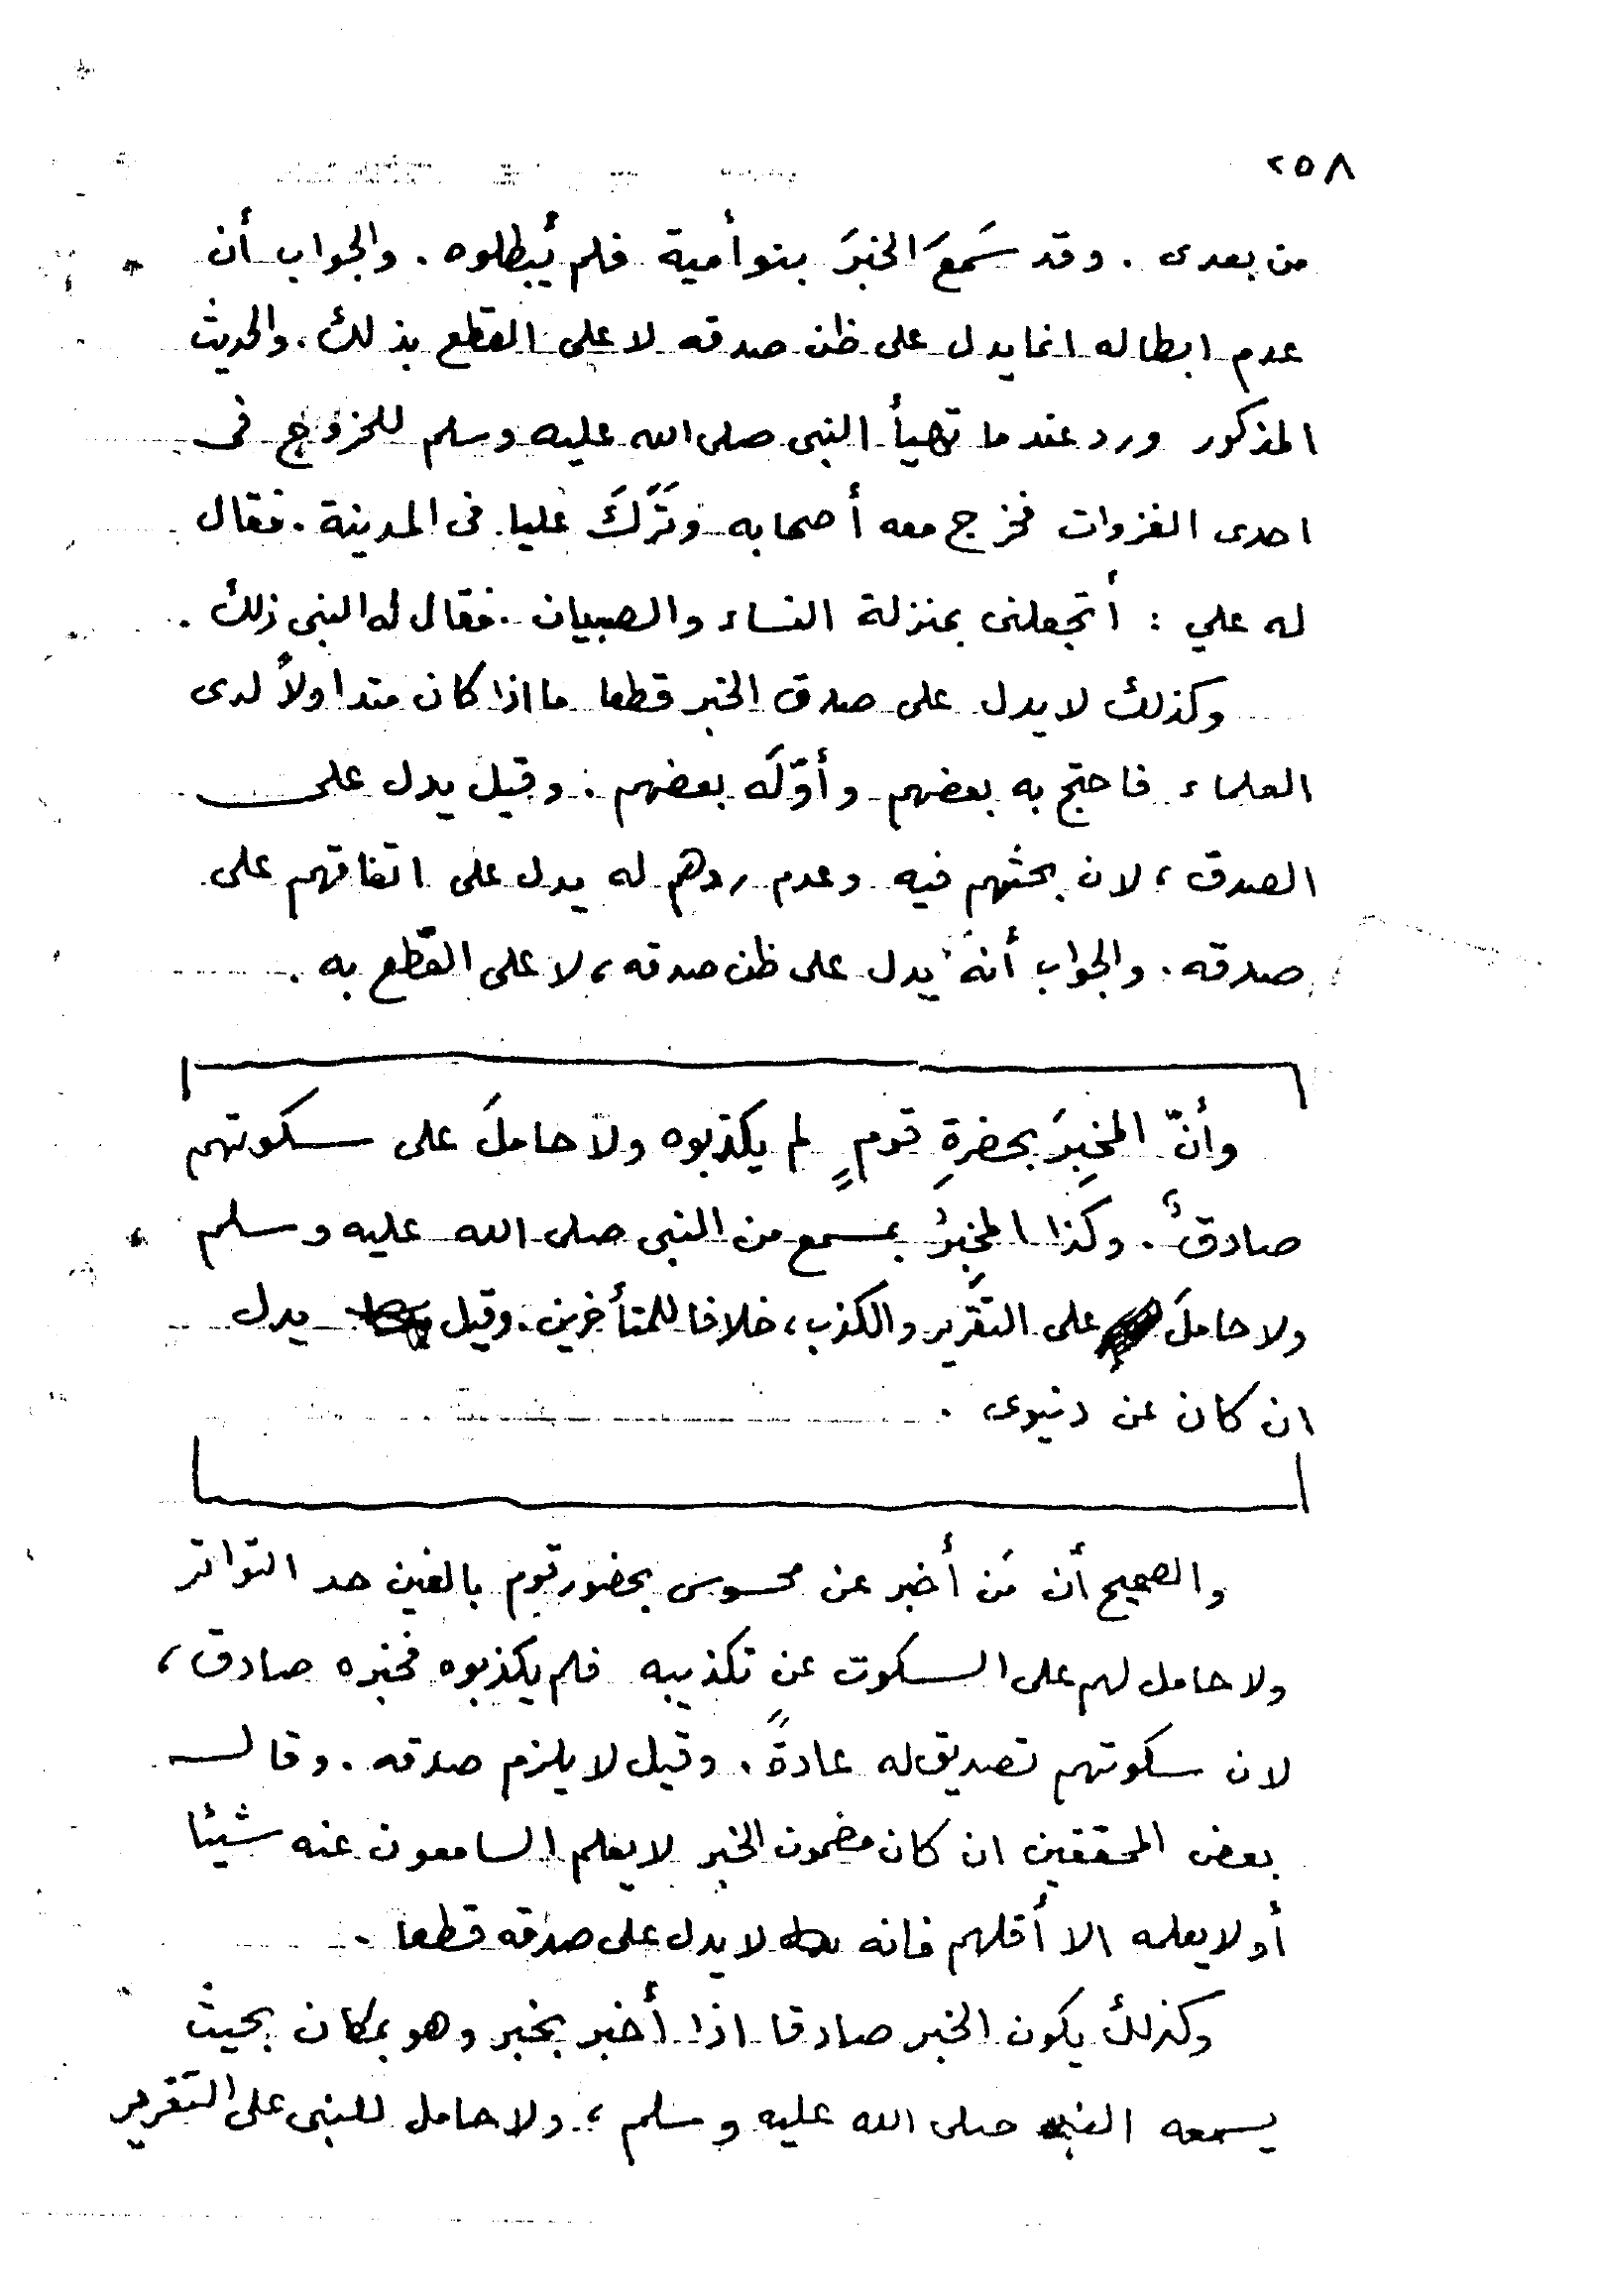 ٢٥٨
من بعدى . وقد سَمعَ الخبرَ بنوأمية فلم يُبطلوه . والجواب أن
عدم ابطاله انما يدل على ظن صدقه لا على القطع بذلك . والحديث
المذكور ورد عندما تهيأ النبى صلى الله عليه وسلم للخروج فى
احدى الغزوات فخرج معه أصحابه وتَرَكَ عليا فى المدينة . فقال
له علي : أتجعلنى بمنزلة النساء والصبيان . فقال له النبى ذلك .
وكذلك لا يدل على صدق الخبر قطعا ما اذا كان متداولاً لدى
العلماء فاحتج به بعضهم وأوّلَه بعضهم . وقيل يدل على
الصدق ، لان بحثهم فيه وعدم ردهم له يدل على اتفاقهم على
صدقه . والجواب أنه يدل على ظن صدقه ، لا على القطع به .
وأنّ المخبِرَ بحضرةِ قومٍ لم يكذبوه ولا حاملَ على سكوتهم
صادقٌ . وكذا المخبِرُ بمسمع من النبى صلى الله عليه وسلم
ولا حاملَ على التقرير والكذب ، خلافا للمتأخرين . وقيل يدل
ان كان عن دنيوى .
والصحيح أن مَن أخبر عن محسوس بحضور قوم بالغين حد التواتر
ولا حامل لهم على السكوت عن تكذيبه فلم يكذبوه فخبره صادق ،
لان سكوتهم تصديق له عادةً . وقيل لا يلزم صدقه . وقال
بعض المحققين ان كان مضمون الخبر لا يعلم السامعون عنه شيئا
أو لا يعلمه الا أقلهم فانه لا يدل على صدقه قطعا .
وكذلك يكون الخبر صادقا اذا أخبر بخبر وهو بمكان بحيث
يسمعه النبى صلى الله عليه وسلم ، ولا حامل للنبى على التقرير